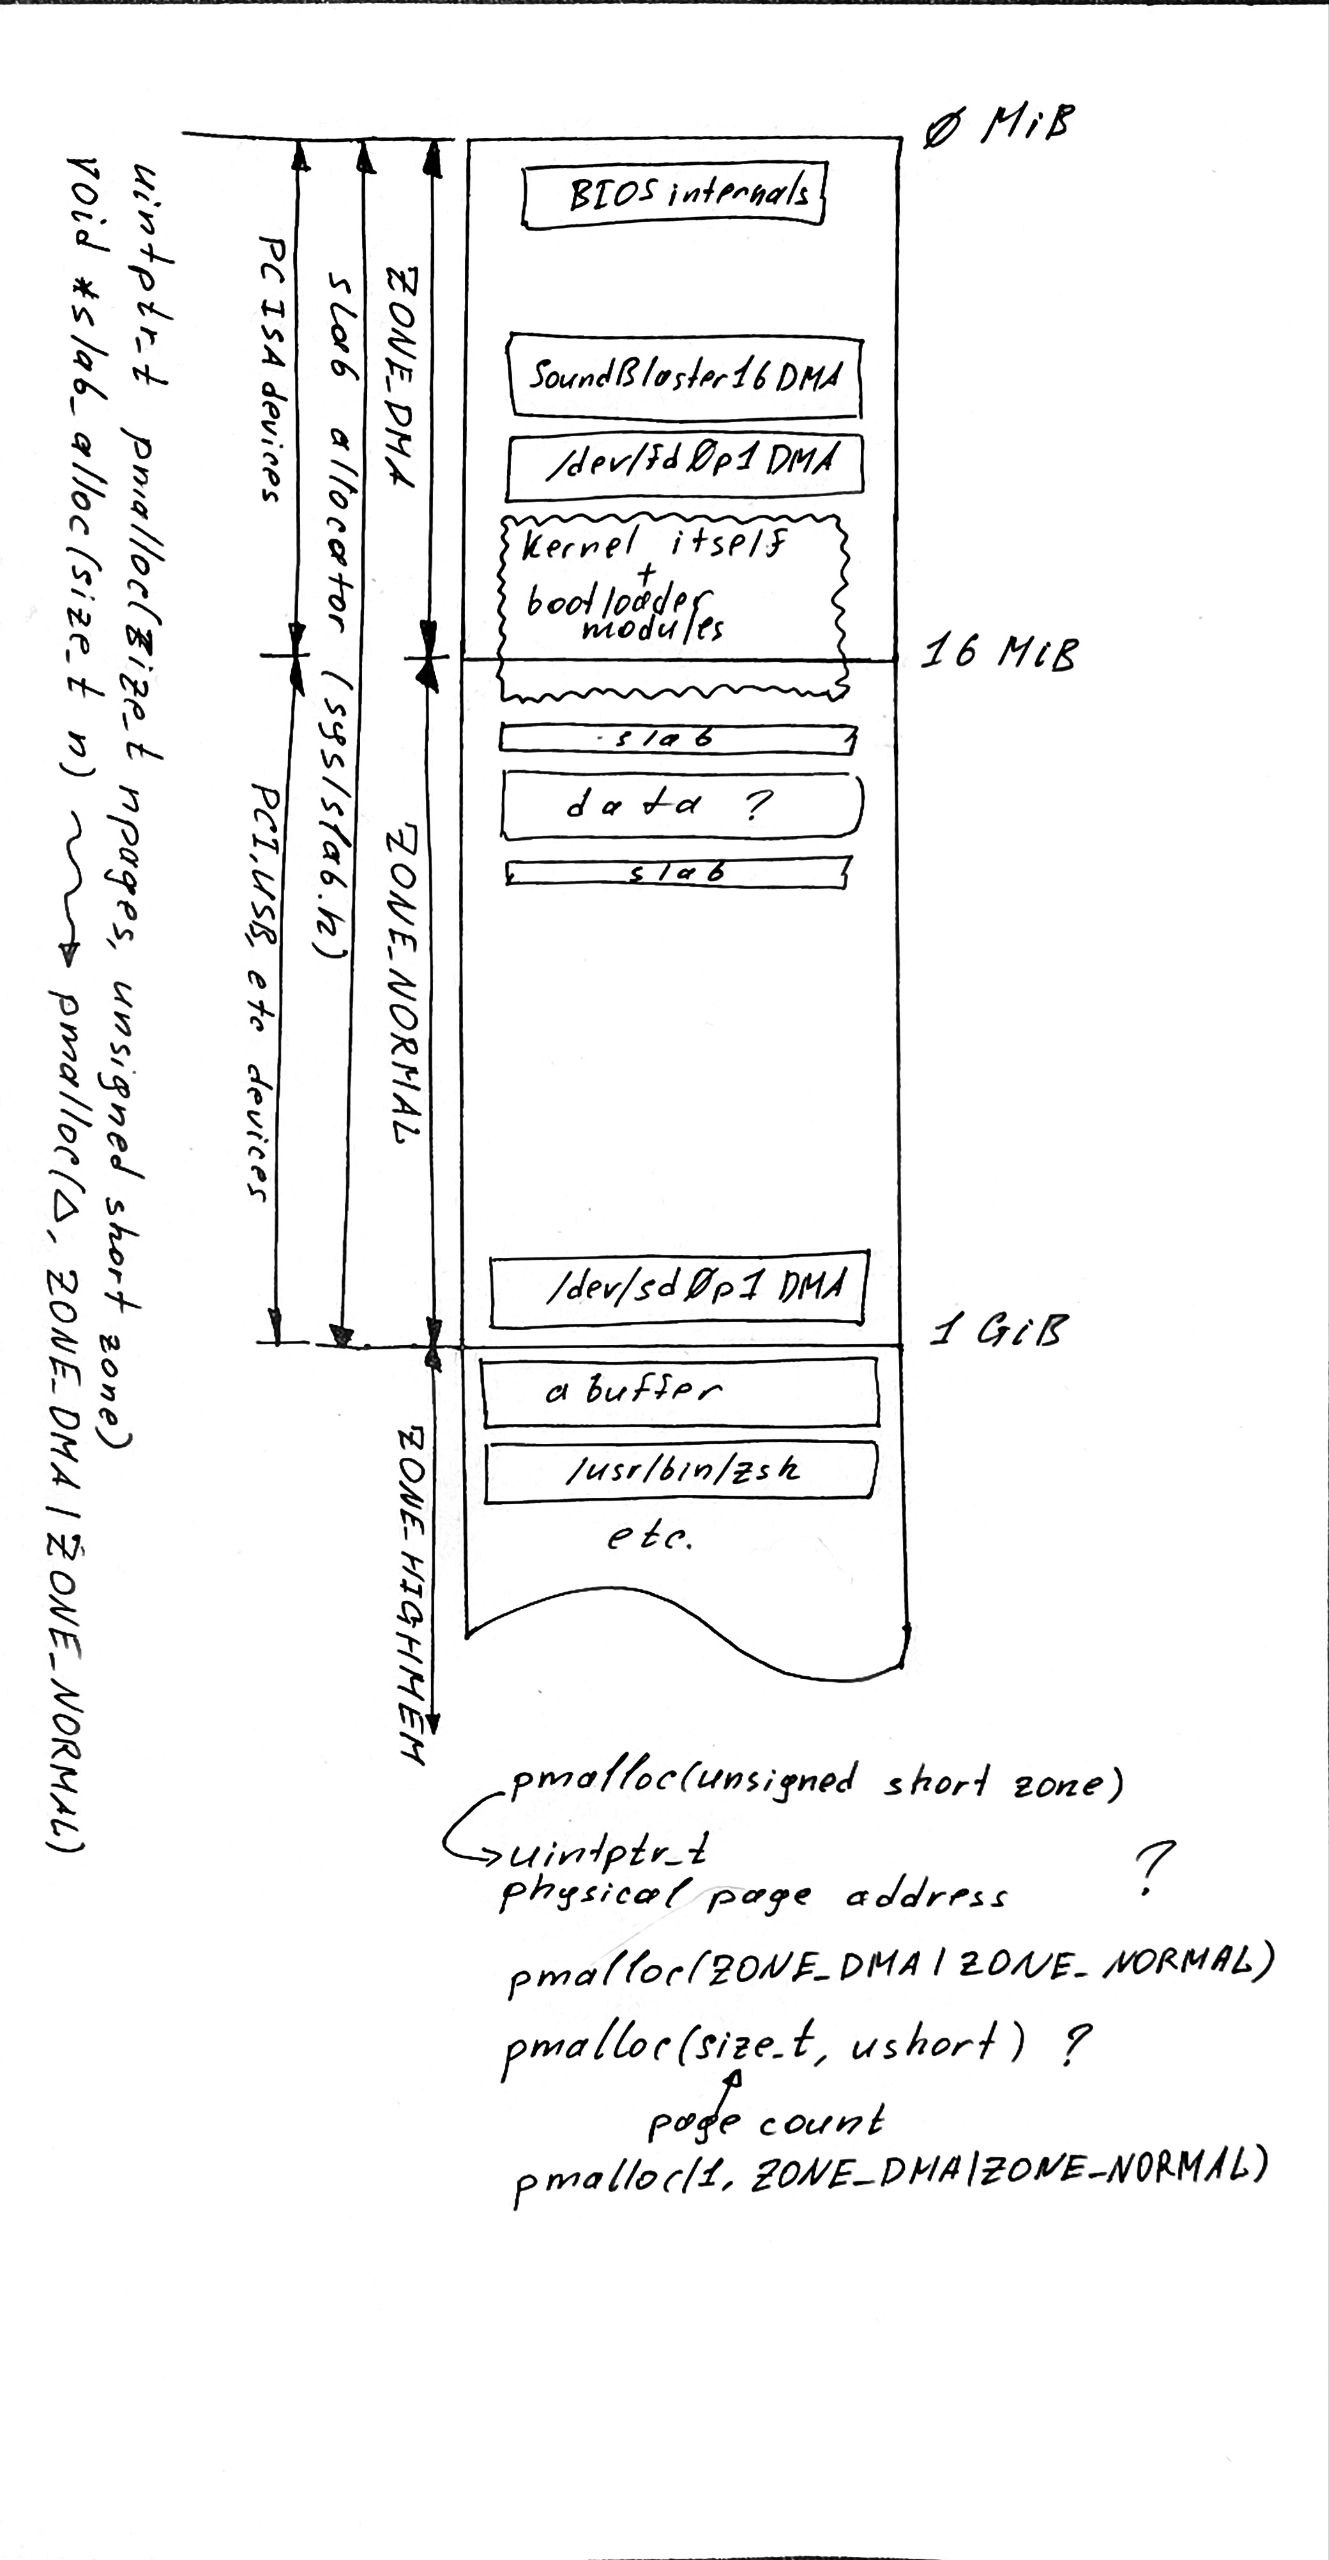 Ø MiB
BIOS internals
SoundBlaster16 DMA
/dev/fdØp1 DMA
kernel itself
+
bootloader
modules
16 MiB
slab
data ?
slab
/dev/sdØp1 DMA
1 GiB
a buffer
/usr/bin/zsh
etc.
ZONE_DMA
ZONE_NORMAL
ZONE_HIGHMEM
slab allocator (sys/slab.h)
PC ISA devices
PCI, USB, etc devices
uintptr_t pmalloc(size_t npages, unsigned short zone)
void *slab_alloc(size_t n) → pmalloc(△, ZONE_DMA | ZONE_NORMAL)
pmalloc(unsigned short zone)
→ uintptr_t
physical page address ?
pmalloc(ZONE_DMA | ZONE_NORMAL)
pmalloc(size_t, ushort) ?
page count
pmalloc(1, ZONE_DMA|ZONE_NORMAL)